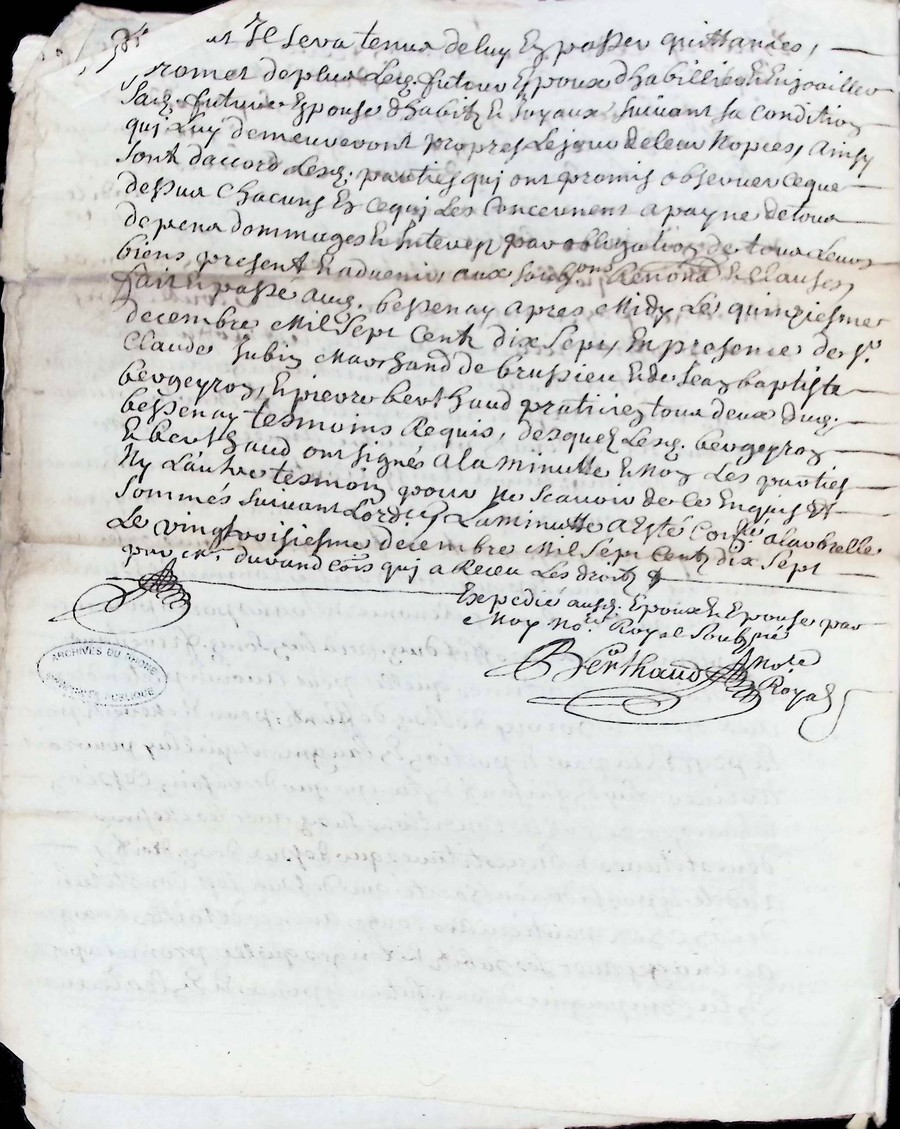 et Il sera tenu de luy En passer quittances,
romet de plus Led. futour Epoux d'habillier Et Enjoailler
Sad. future Epouse d'habitz Et Joyaux Suivant sa Condition
qui Luy demeureront propres Le jour de leur Nopces, Ainsy
Sont daccord Lesd. parties qui ont promis observer ce que
dessus Chacuns En ce qui Les Concernent a payne de tous
depens dommages Et Interest par obligation de tous Leurs
biens, present Et advenir, aux Soub.ons Renon.a Et Clauses
fait Et passé aud. bessenay apres Midy Le quinziesme
decembre Mil Sept Cent dix Sept, En presence de Sr.
Claude Subin Marchand de brussieu Et de Jean baptiste
bergeyron, Et pierre berthaud praticien tous deux dud.
bessenay tesmoins Requis, desquelz Lesd. bergeyron
Et berthaud ont signés a la Minutte Et Non Les parties
Ny L'autre tesmoin pour ne Scavoir de ce Enquis Et
Sommés Suivant L'ord. Laminutte a Esté Con.lée alarbrelle
Le vingtroisiesme decembre Mil Sept Cent dix Sept
par Me. durand Cois qui a Receu Les droitz
Expedié ausd. Epoux Et Epouse par
Moy No.re Royal Soubz.né
Berthaud Note
Royal
ARCHIVES DU RHONE